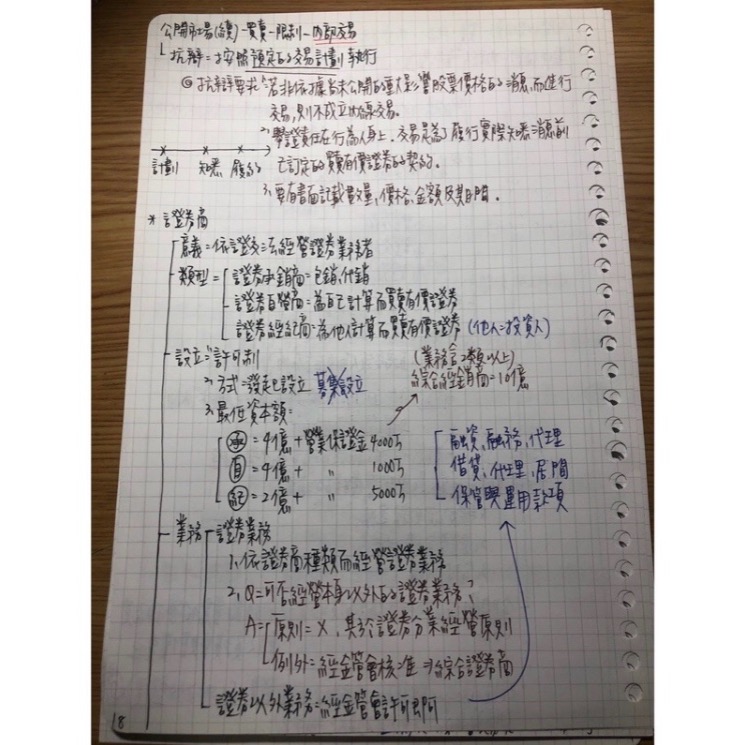 公開市場(續)-買賣-限制-內部交易
抗辯=按照預定的交易計劃執行
◎抗辯要求 1.若非依據尚未公開的重大影響股票價格的消息而進行
交易,則不成立內線交易。
2.舉證責任在行為人身上,交易是為了履行實際知悉消息前
計劃 知悉 履約 已訂定的買賣有價證券的契約。
3.要有書面記載數量,價格,金額及其期間。
*證券商
意義=依證交法經營證券業務者
類型=證券承銷商=包銷,代銷
證券自營商=為自己計算而買賣有價證券
證券經紀商=為他人計算而買賣有價證券 (他人=投資人)
設立=1.許可制 (業務含2類以上)
2.方式=發起設立 募集設立 綜合經銷商=10億
3.最低資本額:
承=4億+營業保證金4000萬 融資,融券,代理
自=4億+ 〃 1000萬 借貸,代理,居間
紀=2億+ 〃 5000萬 保管與運用款項
業務 證券業務
1.依證券商種類而經營證券業務
2.Q=可否經營本身以外的證券業務?
A=原則=X,其於證券分業經營原則
例外=經金管會核准⇒綜合證券商
證券以外業務=經金管會許可即可
18